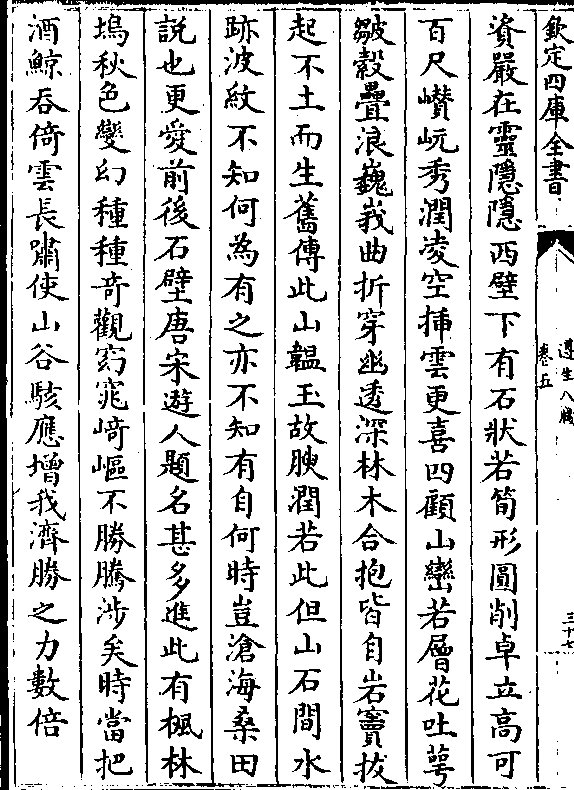 欽定四庫全書
遵生八牋
卷五
三十七
資嚴在靈隱隱西壁下有石狀若筍形圓削卓立高可
百尺巑岏秀潤凌空揷雲更喜四顧山巒若層花吐萼
皺縠疊浪巍峩曲折穿幽透深林木合抱皆自岩竇拔
起不土而生舊傳此山韞玉故腴潤若此但山石間水
跡波紋不知何為有之亦不知有自何時豈滄海桑田
説也更愛前後石壁唐宋遊人題名甚多進此有楓林
塢秋色變幻種種奇觀窈窕﨑嶇不勝騰涉矣時當把
酒鯨吞倚雲長嘯使山谷駭應增我濟勝之力數倍